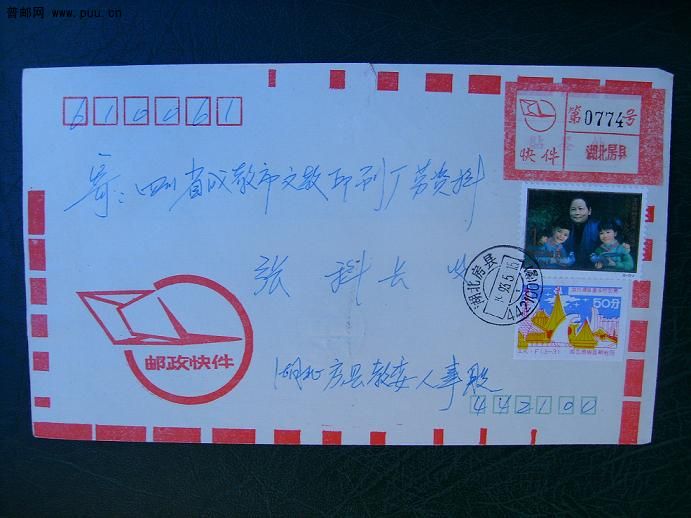 普邮网 www.puu.cn
610061
第0774号
快件
湖北房县
寄：四川省成都市文教印刷厂劳资科
张 科长 收
湖北房县
93.5.15
442100
50分
邮政快件
湖北房县教委人事股
442100